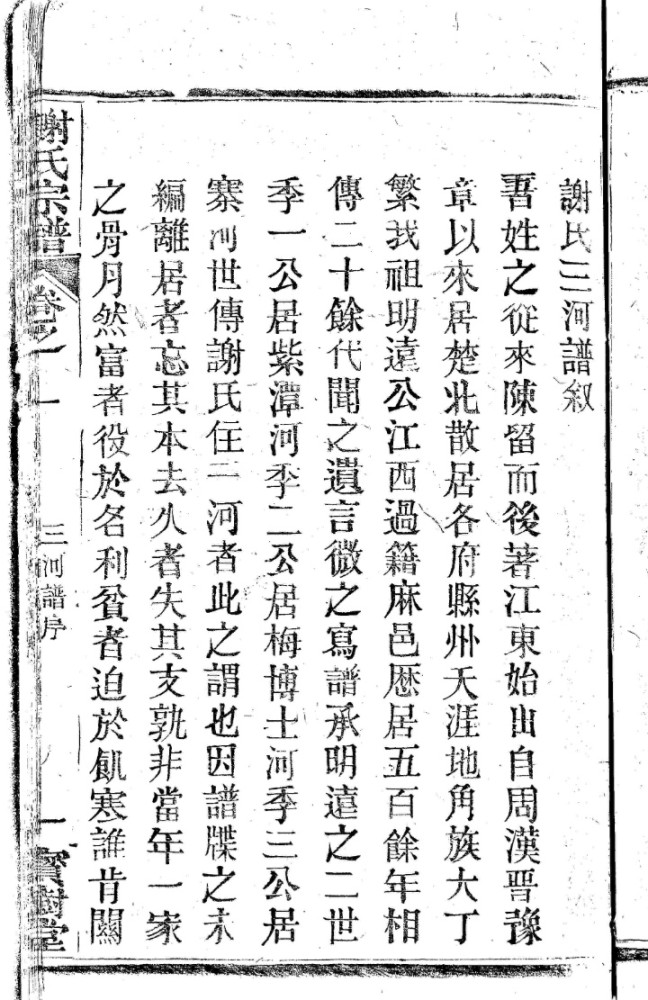 謝氏三河譜叙
吾姓之從來陳留而後著江東始出自周漢晋豫
章以來居楚北散居各府縣州天涯地角族大丁
繁我祖明遠公江西過籍麻邑歷居五百餘年相
傳二十餘代聞之遺言微之寫譜承明遠之二世
季一公居紫潭河季二公居梅博士河季三公居
寨河世傳謝氏住三河者此之謂也因譜牒之未
編離居者忘其本去久者失其支孰非當年一家
之骨月然富者役於名利貧者迫於飢寒誰肯關
謝氏宗譜 卷之一 三河譜序 一 寳樹堂